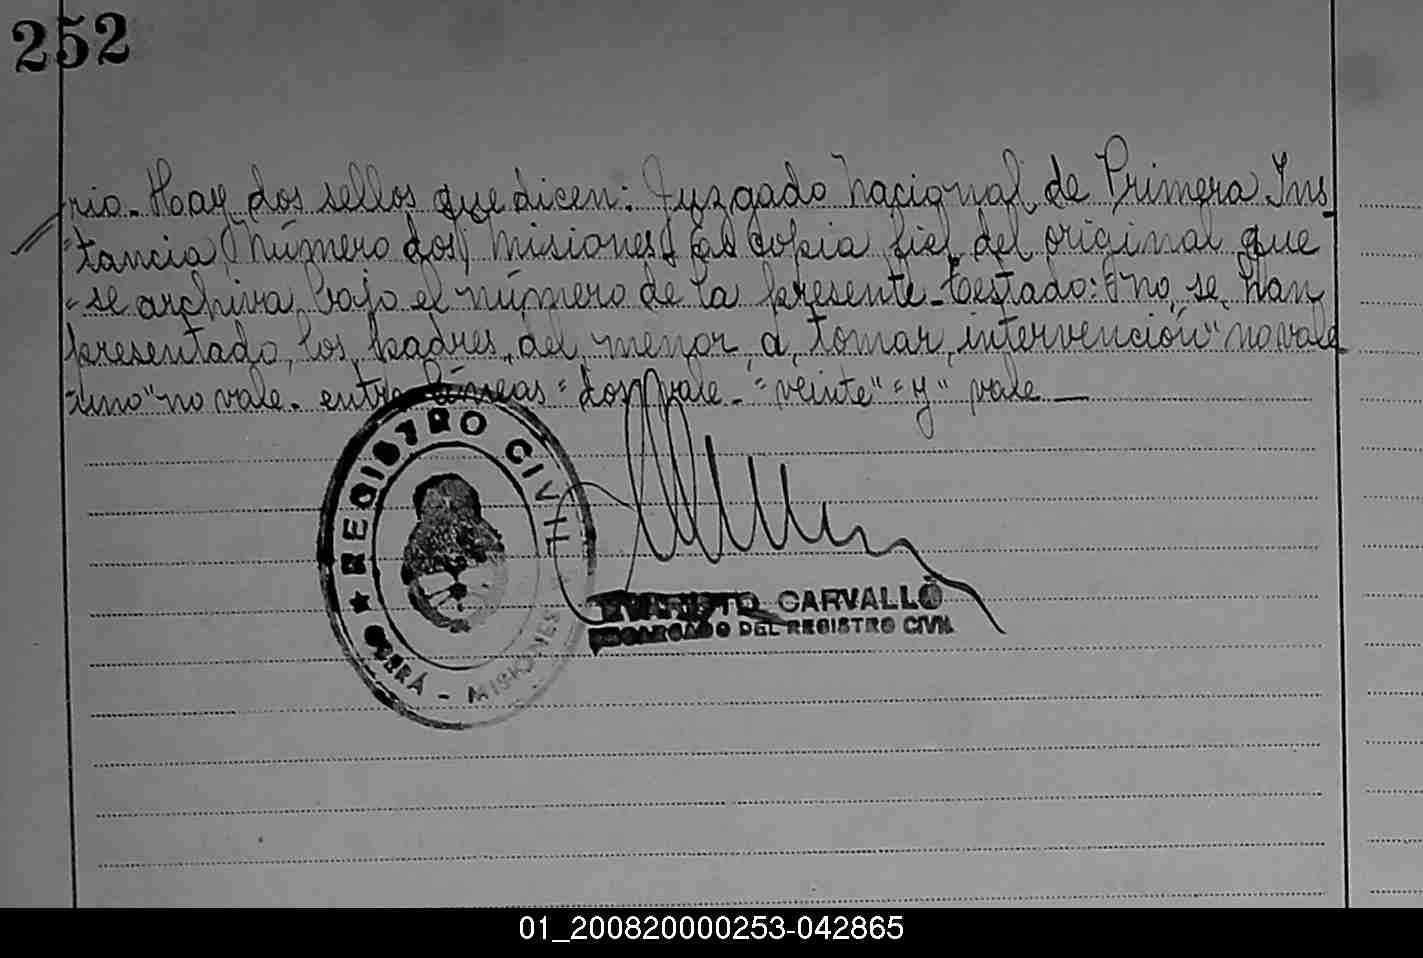 252
rio. Hay dos sellos que dicen: Juzgado Nacional de Primera Ins-
"tancia Número dos, Misiones. Es copia fiel del original que
"se archiva bajo el número de la presente. Testado: "no se han
presentado los padres del menor a tomar intervención" no vale
"uno" no vale. entre líneas "dos" vale. "veinte" "y" vale.
REGISTRO CIVIL
OBERÁ - MISIONES
CARVALLO
ENCARGADO DEL REGISTRO CIVIL
01_200820000253-042865